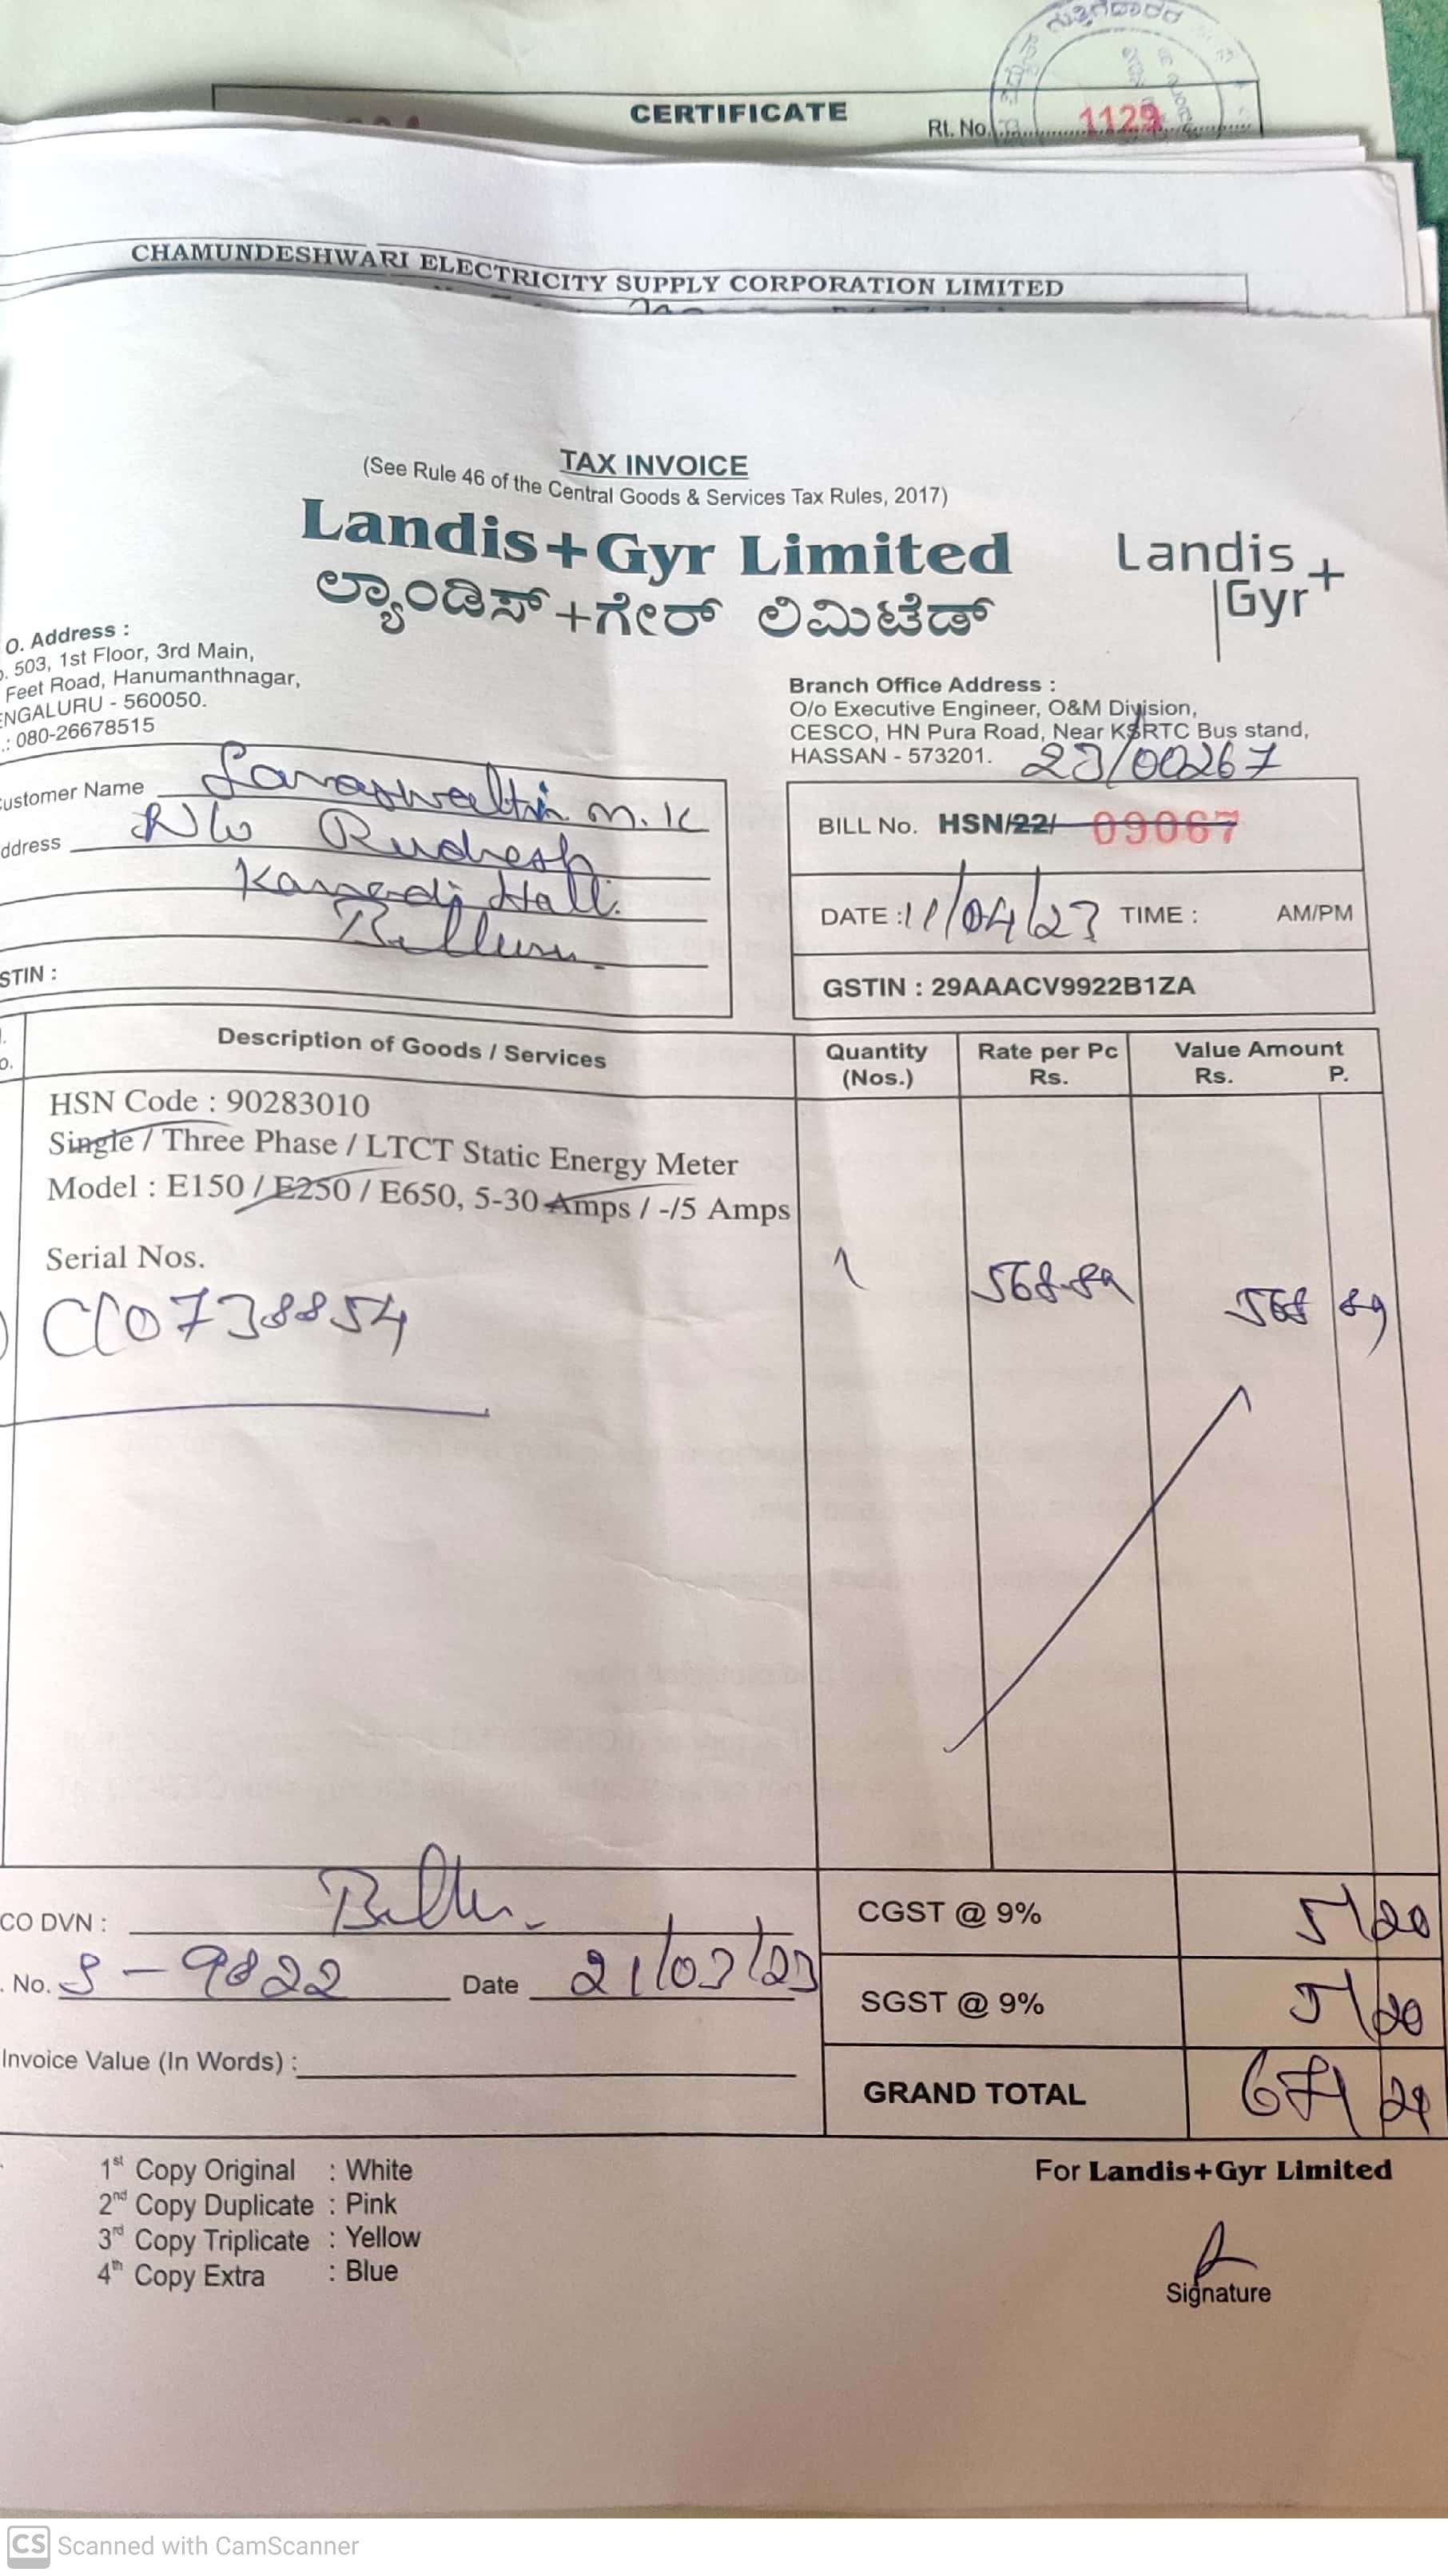 CERTIFICATE
Rt. No. 1129
CHAMUNDESHWARI ELECTRICITY SUPPLY CORPORATION LIMITED
TAX INVOICE
(See Rule 46 of the Central Goods & Services Tax Rules, 2017)
Landis+Gyr Limited
ಲ್ಯಾಂಡಿಸ್+ಗೇರ್ ಲಿಮಿಟೆಡ್
Landis+
Gyr
O. Address :
. 503, 1st Floor, 3rd Main,
Feet Road, Hanumanthnagar,
ENGALURU - 560050.
.: 080-26678515
Branch Office Address :
O/o Executive Engineer, O&M Division,
CESCO, HN Pura Road, Near KSRTC Bus stand,
HASSAN - 573201.
23/00267
ustomer Name M.K
ddress
Kanadi Hall.
STIN :
BILL No. HSN/22/ 09067
DATE : 11/04/23 TIME : AM/PM
GSTIN : 29AAACV9922B1ZA
Description of Goods / Services
Quantity (Nos.)
Rate per Pc Rs.
Value Amount Rs. P.
HSN Code : 90283010
Single / Three Phase / LTCT Static Energy Meter
Model : E150 / E250 / E650, 5-30 Amps / -/5 Amps
Serial Nos.
1 568.89 568 89
CO DVN :
. No. S-9822 Date 21/03/23
Invoice Value (In Words) :
CGST @ 9% 51 20
SGST @ 9% 51 20
GRAND TOTAL 671 29
1st Copy Original : White
2nd Copy Duplicate : Pink
3rd Copy Triplicate : Yellow
4th Copy Extra : Blue
For Landis+Gyr Limited
Signature
CS Scanned with CamScanner